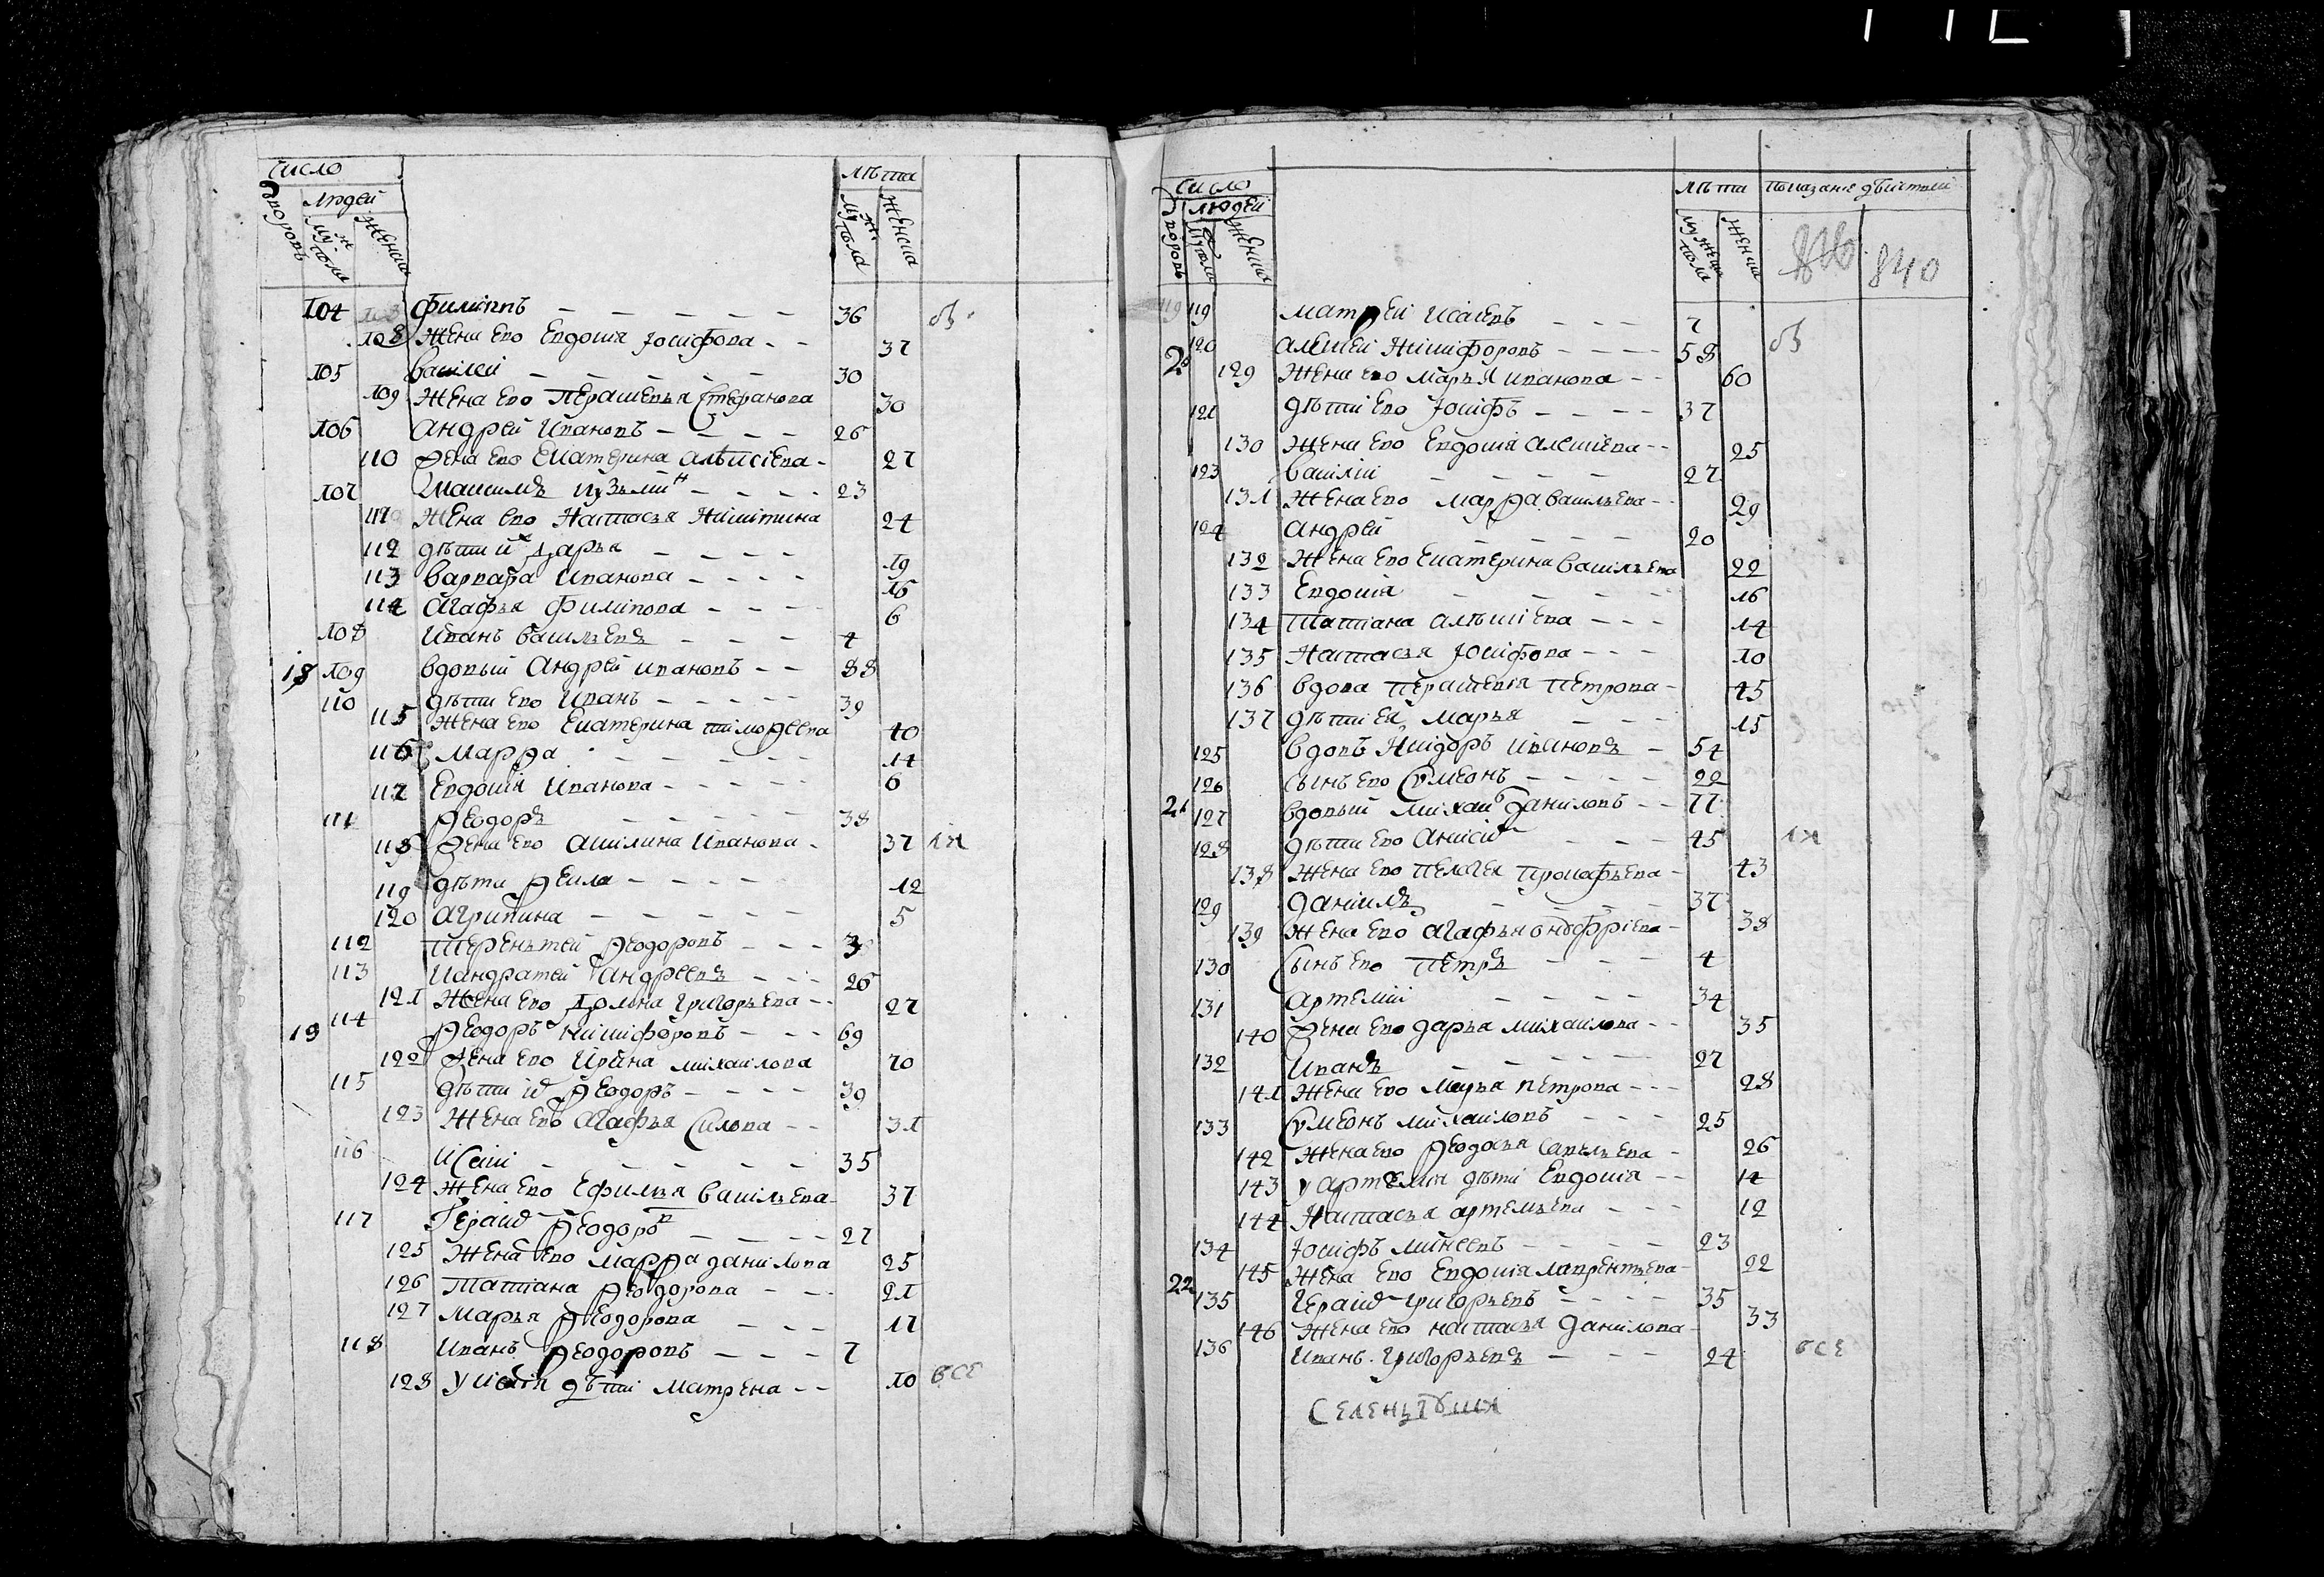 число
людей
дворовъ
мужеска
женска
лѣта
мужеска
женска
104 Филиппъ 36
108 Жена ево Евдокия Иосифова 37
105 Василеи 30
109 Жена ево Перасковья Стефанова 30
106 Андреи Ивановъ 26
110 Жена ево Екатерина Алѣксиева 27
107 Максимъ Кузьминъ 23
111 Жена ево Настасья Никитина 24
112 дѣти их Дарья 19
113 Варвара Иванова 16
114 Агафья Филипова 6
108 Иванъ Васильевъ 4
18 109 вдовыи Андреи Ивановъ 88
110 дѣти ево Иванъ 39
115 Жена ево Екатерина Тимоѳеева 40
116 Марѳа 14
117 Евдокия Иванова 6
111 Ѳеодоръ 38
118 Жена ево Акилина Иванова 37
119 дѣти Ѳекла 12
120 Агрипина 5
112 Терентеи Ѳеодоровъ 3
113 Кандратеи Андреевъ 26
121 Жена ево Домна Григорьева 27
19 114 Ѳеодоръ Никифоровъ 69
122 Жена ево Ирина Михаилова 70
115 дѣти их Ѳеодоръ 39
123 Жена ево Агафья Силова 31
116 Исаии 35
124 Жена ево Ефимья Васильева 37
117 Герасим Ѳеодоров 27
125 Жена ево Марѳа Данилова 25
126 Татиана Ѳеодорова 21
127 Марья Ѳеодорова 17
118 Иванъ Ѳеодоровъ 7
128 у Исаия дѣти Матрена 10 все
число
людей
дворовъ
мужеска
женска
лѣта
мужеска
женска
показание дѣиствии
840
119 119 Матѳеи Исаиевъ 7
20 120 Алексеи Никифоровъ 58
129 Жена ево Марья Иванова 60
121 дѣти ево Иосифъ 37
130 Жена ево Евдокия Алексиева 25
123 Василии 27
131 Жена ево Марѳа Васильева 29
124 Андреи 20
132 Жена ево Екатерина Васильева 22
133 Евдокия 16
134 Татиана Алѣксиева 14
135 Настасья Иосифова 10
136 вдова Перасковия Петрова 45
137 дѣти ея Марья 15
125 вдовъ Исидоръ Ивановъ 54
126 сынъ ево Сѵмеонъ 22
21 127 вдовыи Михаи Даниловъ 77
128 дѣти ево Анисим 45
138 Жена ево Пелагея Прокафьева 43
129 Даниилъ 37
139 Жена ево Агафья Онофриева 38
130 Сынъ ево Петръ 4
131 Артемии 34
140 Жена ево Дарья Михаилова 35
132 Иванъ 27
141 Жена ево Марья Петрова 28
133 Сѵмеонъ Михаиловъ 25
142 Жена ево Ѳеодосья Савельева 26
143 у Артемия дѣти Евдокия 14
144 Настасья Артемьева 12
134 Иосифъ Минеевъ 23
145 Жена ево Евдокия Лаврентьева 22
22 135 Герасим Григорьевъ 35
146 Жена ево Настасья Данилова 33
136 Иванъ Григорьевъ 24 все